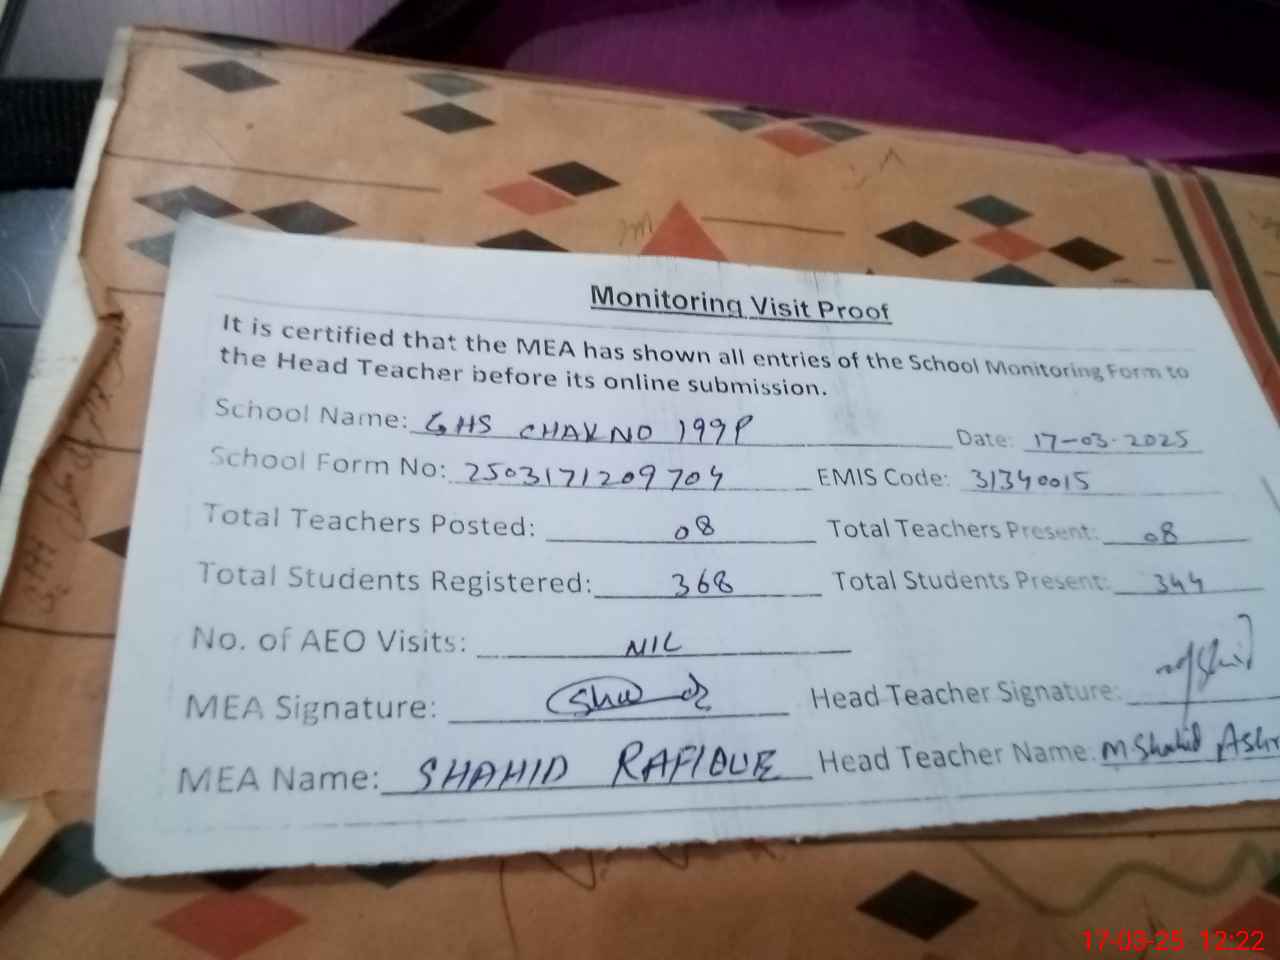 Monitoring Visit Proof
It is certified that the MEA has shown all entries of the School Monitoring Form to
the Head Teacher before its online submission.
School Name: GHS CHAK NO 199P Date: 17-03-2025
School Form No: 2503171209704 EMIS Code: 31340015
Total Teachers Posted: 08 Total Teachers Present: 08
Total Students Registered: 368 Total Students Present: 344
No. of AEO Visits: NIL
MEA Signature: Head Teacher Signature:
MEA Name: SHAHID RAFIQUE Head Teacher Name: M Shahid
17-03-25 12:22